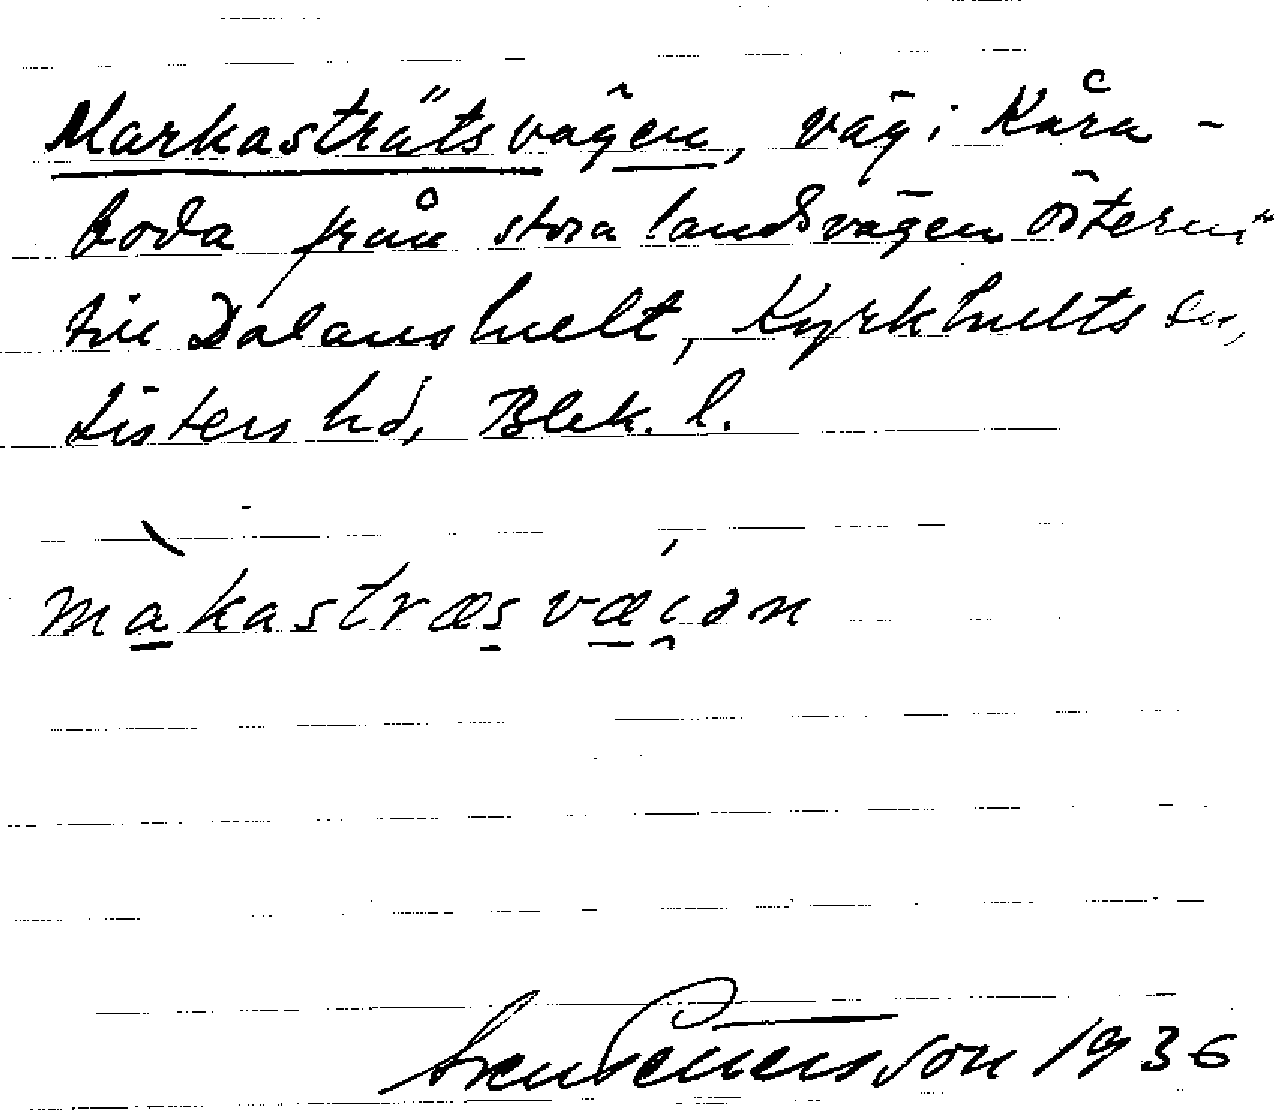 Markasträtsvägen, väg i Kåra-
boda från stora landsvägen österut
till Dalanshult, Kyrkhults sn,
Listers hd, Blek. l.
màkastræsvæ̱i̯ən
Sven Petersson 1936